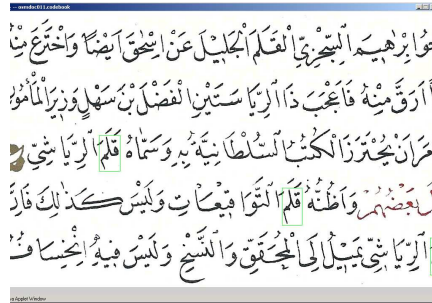 -- osmdoc011.codebook
إبرٰهيم السجزي القلم الجليل عن إسحٰق أيضا واخترع منه
أرق منه فأعجب ذا الرياستين الفضل بن سهل وزير المأمون
أن يحترز الكتب السلطانية به وسماه قلم الرياشي
بعضهم وأظنه قلم التواقيعات وليس كذلك فإن
الرياشي يميل إلى المحقق والنسخ وليس فيه انخساف
Applet Window